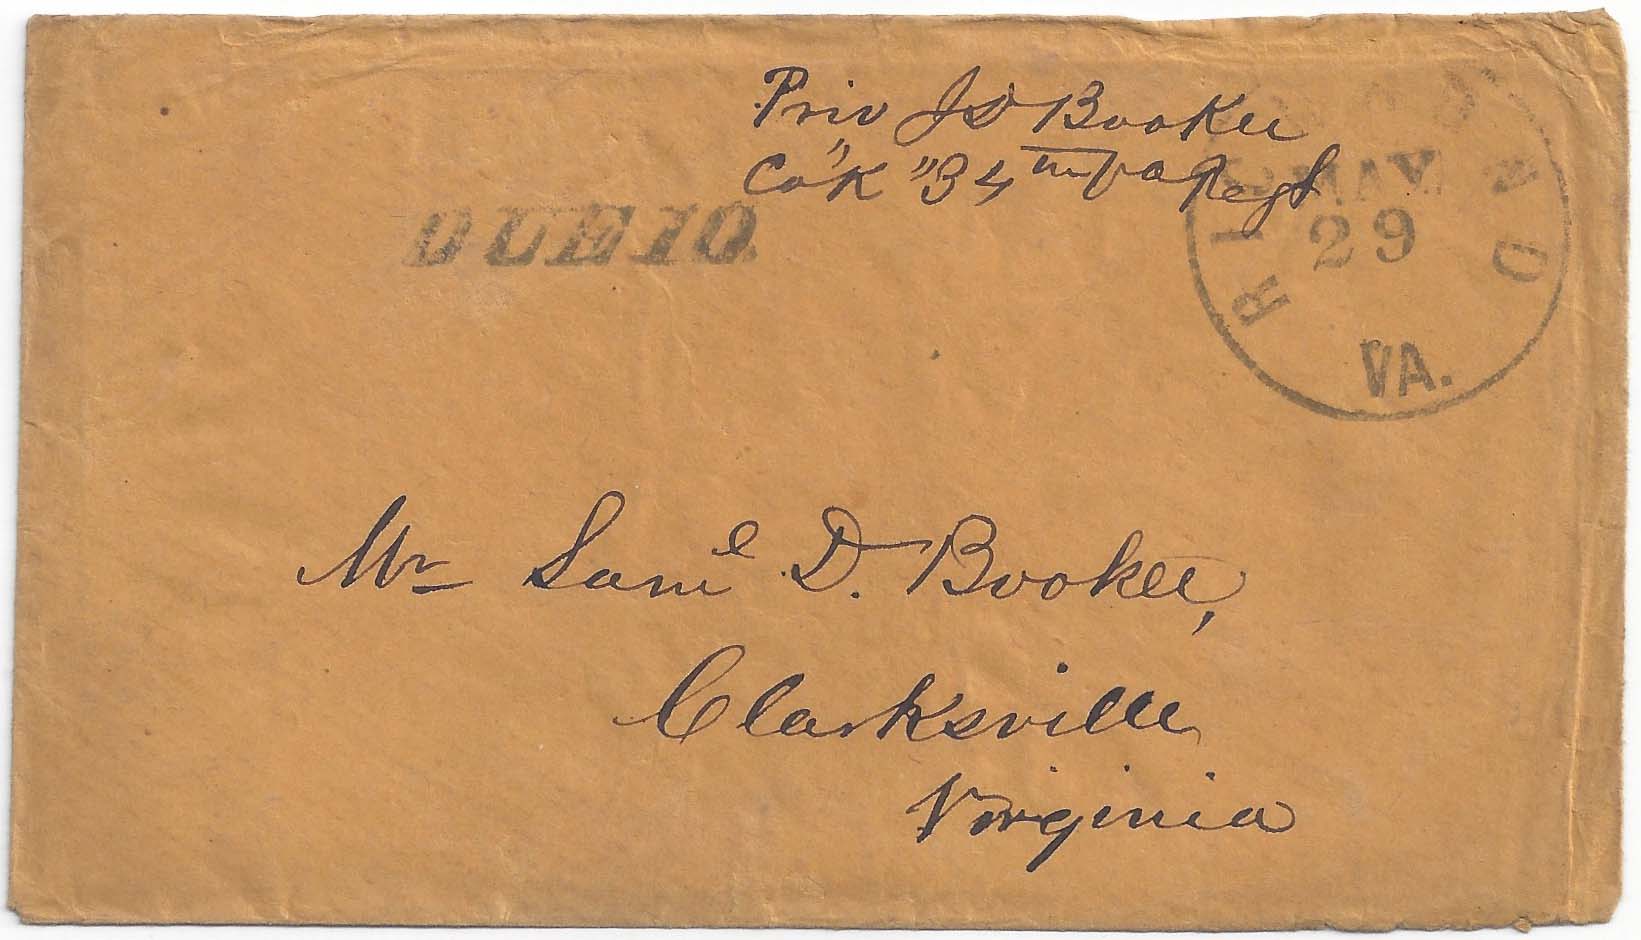 Priv J D Booker
Co "K" 34th Va Regt
DUE 10
RICHMOND
MAY
29
VA.
Mr Saml D. Booker,
Clarksville
Virginia